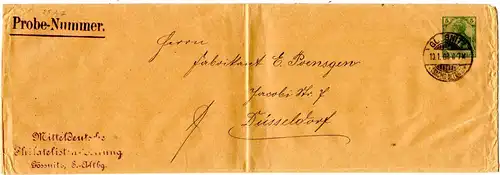 Probe-Nummer.
Herrn
Fabrikant E. Poensgen
Jacobi Str. 7
Düsseldorf
Mitteldeutsche
Philatelisten-Zeitung
Gössnitz, S.-Altbg.
GÖSSNITZ